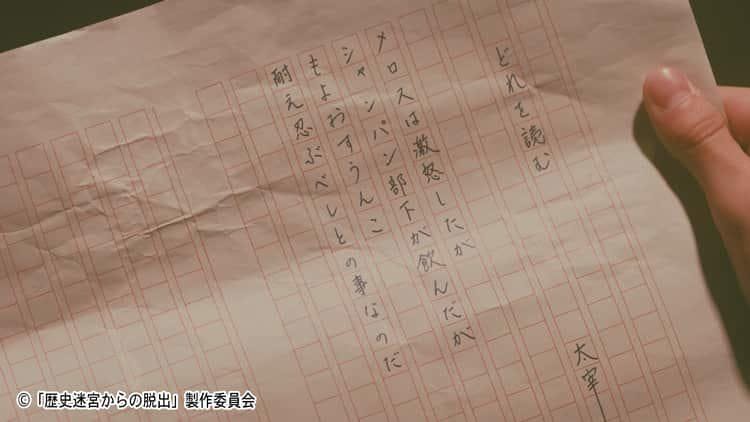 どれを読む
太宰
メロスは激怒したが
シャンパン部下が飲んだが
もよおすうんこ
耐え忍ぶべしとの事なのだ
©「歴史迷宮からの脱出」製作委員会